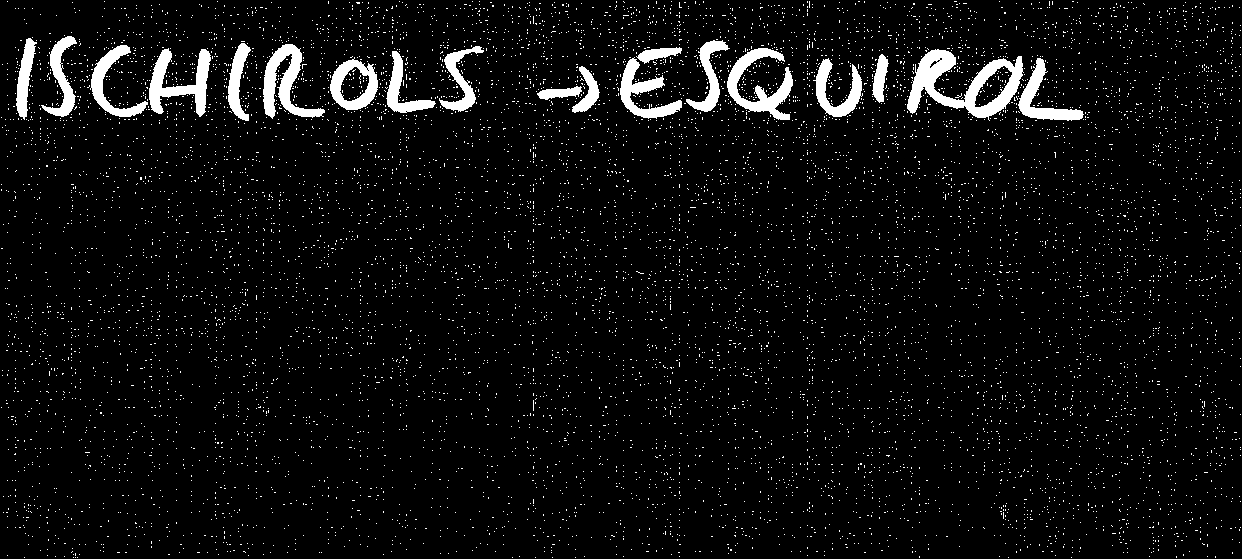 ISCHIROLS → ESQUIROL